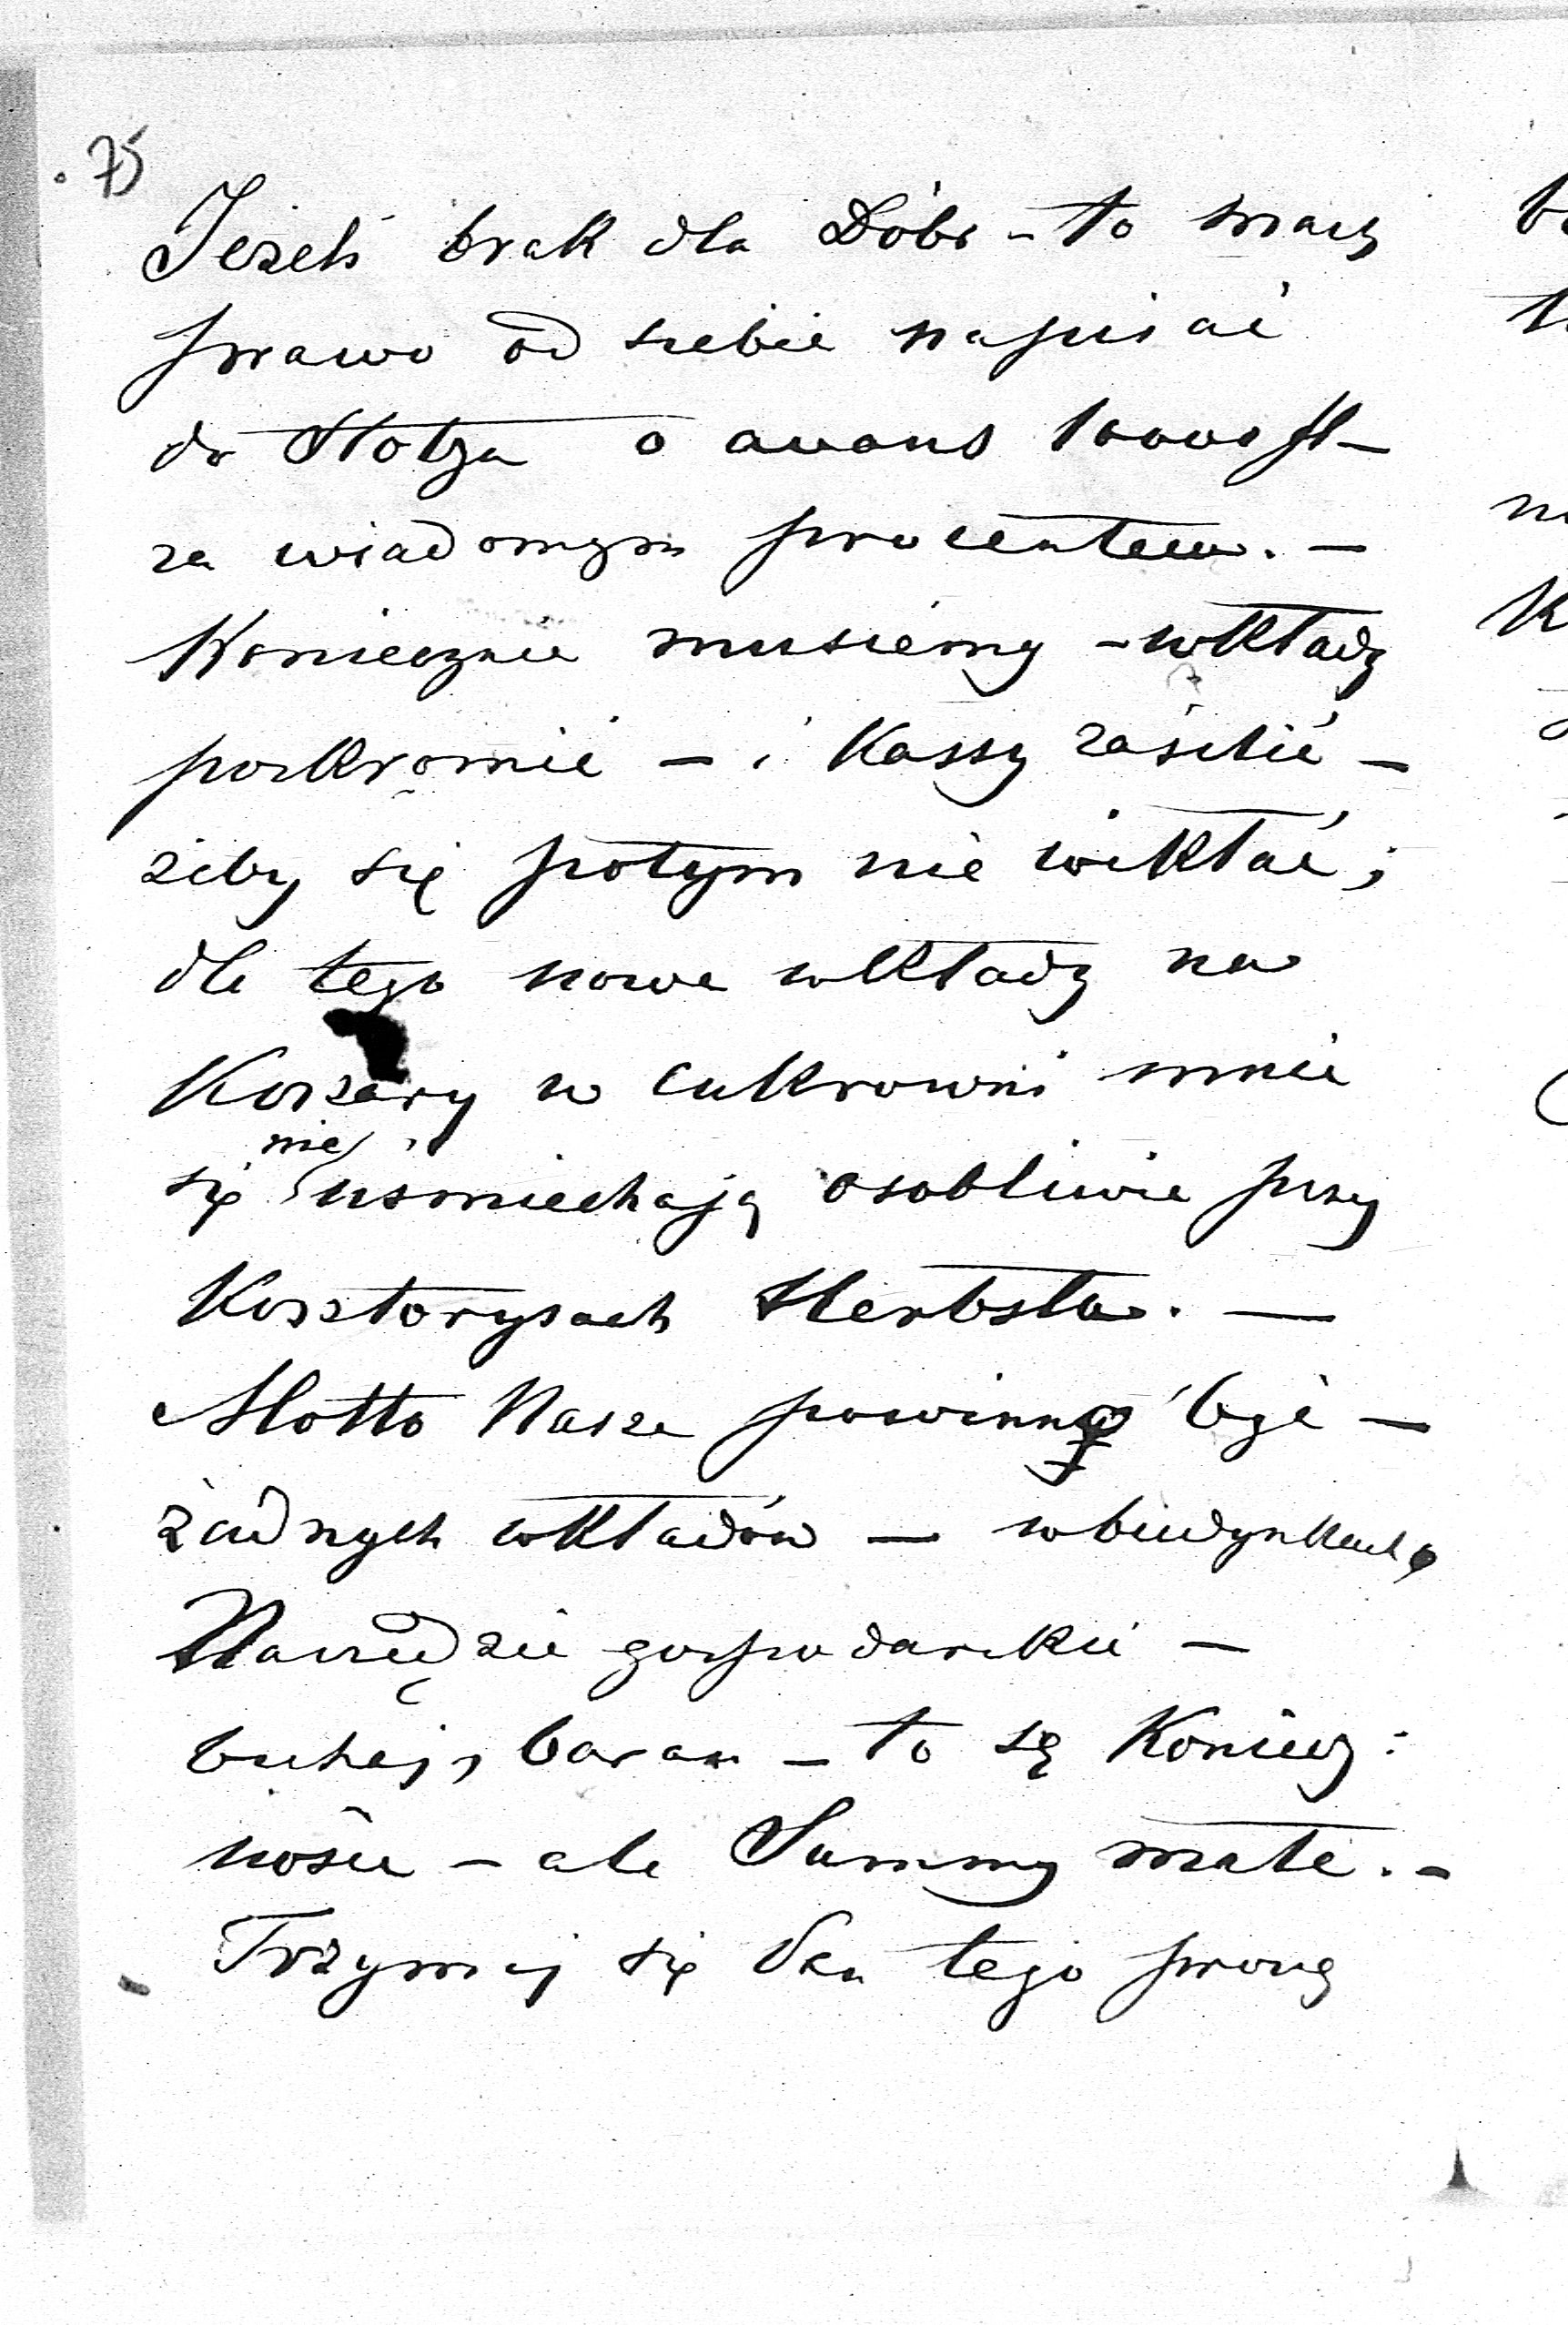 75
Jeżeli brak dla Dóbr - to masz
prawo od siebie napisać
do Hotza o avans 10000 fl -
za wiadomym procentem. -
Koniecznie musiemy - wkłady
poskromić - i Kassy zasilić -
żeby się potym nie wikłać;
dla tego nowe wkłady na
Koszary w Cukrowni mnie
się nie uśmiechają osobliwie przy
Kosztorysach Herbsta. -
Motto Nasze powinno być -
żadnych wkładów - w budynkach,
Narzędzie gospodarskie -
buhaj, baran - to są Koniecz:
ności - ale Summy małe. -
Trzymaj się Pan tego proszę